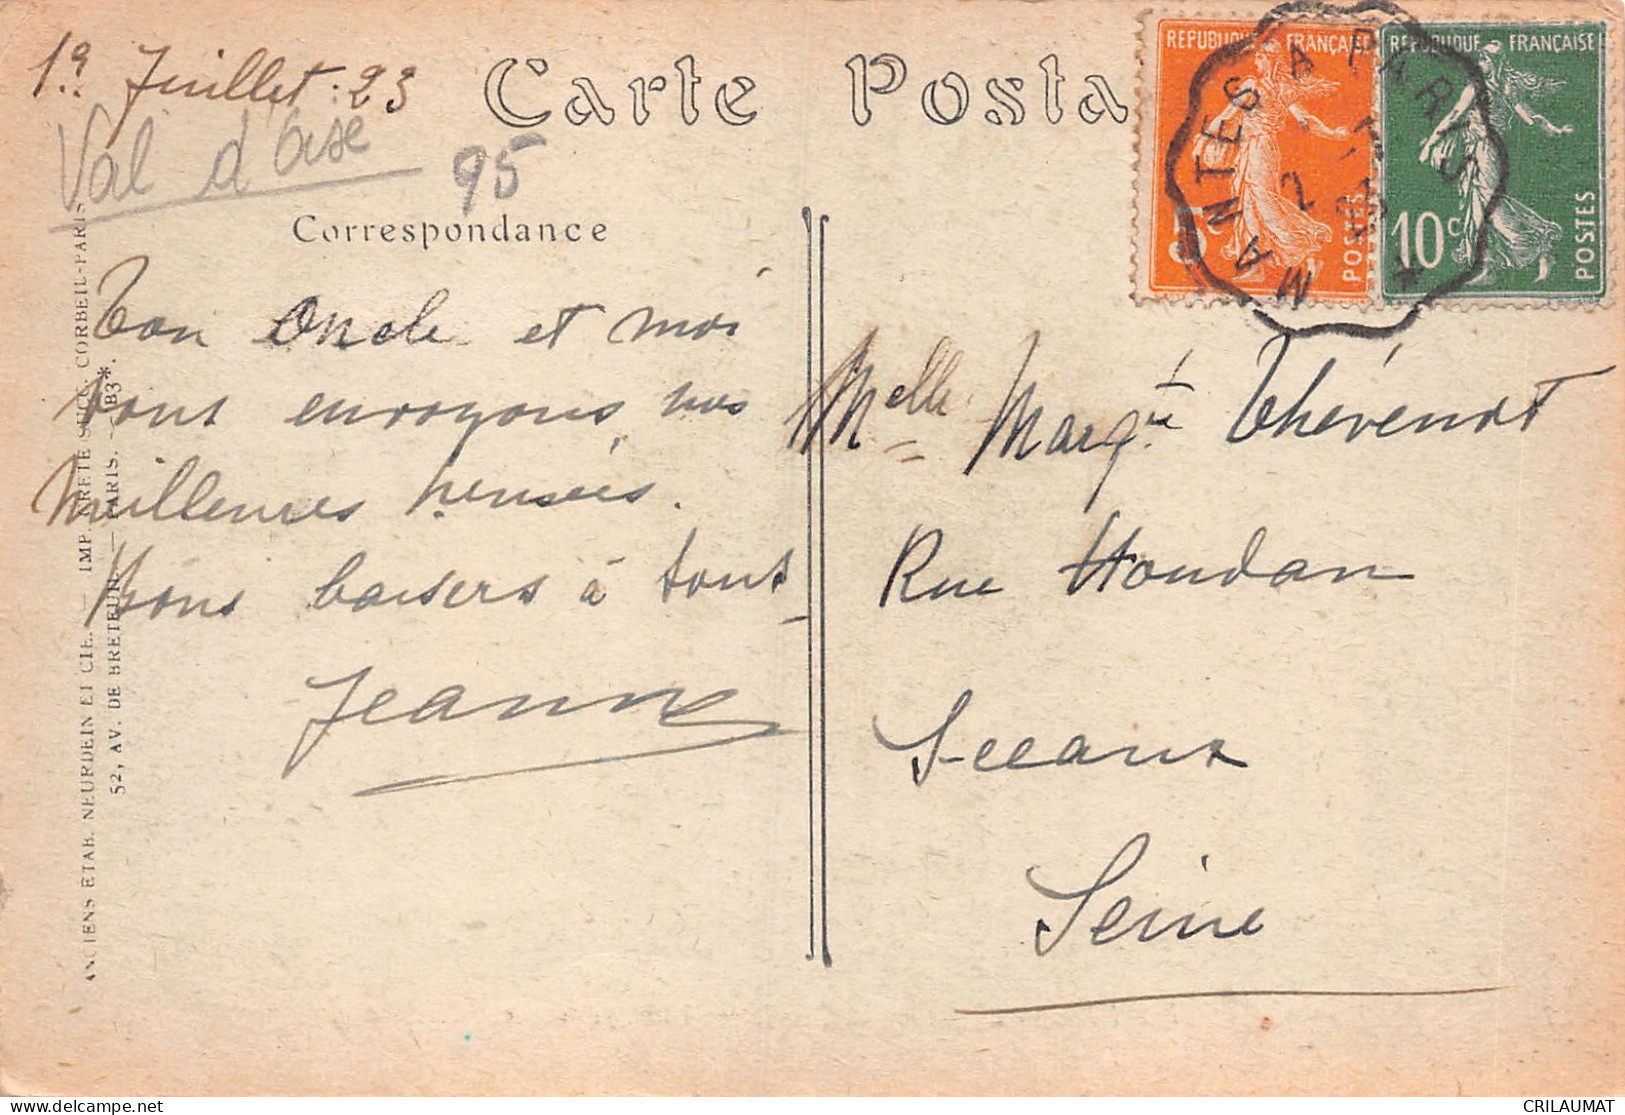 1er Juillet. 23
Val d'oise
95
Carte Posta
Correspondance
Ton Oncle et moi
vous envoyons nos
meilleures pensées.
Bons baisers à tous
Jeanne
Melle Margte Thévenot
Rue Houdan
Sceaux
Seine
REPUBLIQUE FRANÇAISE
5c
POSTES
REPUBLIQUE FRANÇAISE
10c
POSTES
MANTES A PARIS
2
23
ANCIENS ETAB. NEURDEIN ET CIE. — IMP. CRÉTÉ SUCC. CORBEIL-PARIS
52, AV. DE BRETEUIL — PARIS. — B3*.
CRILAUMAT